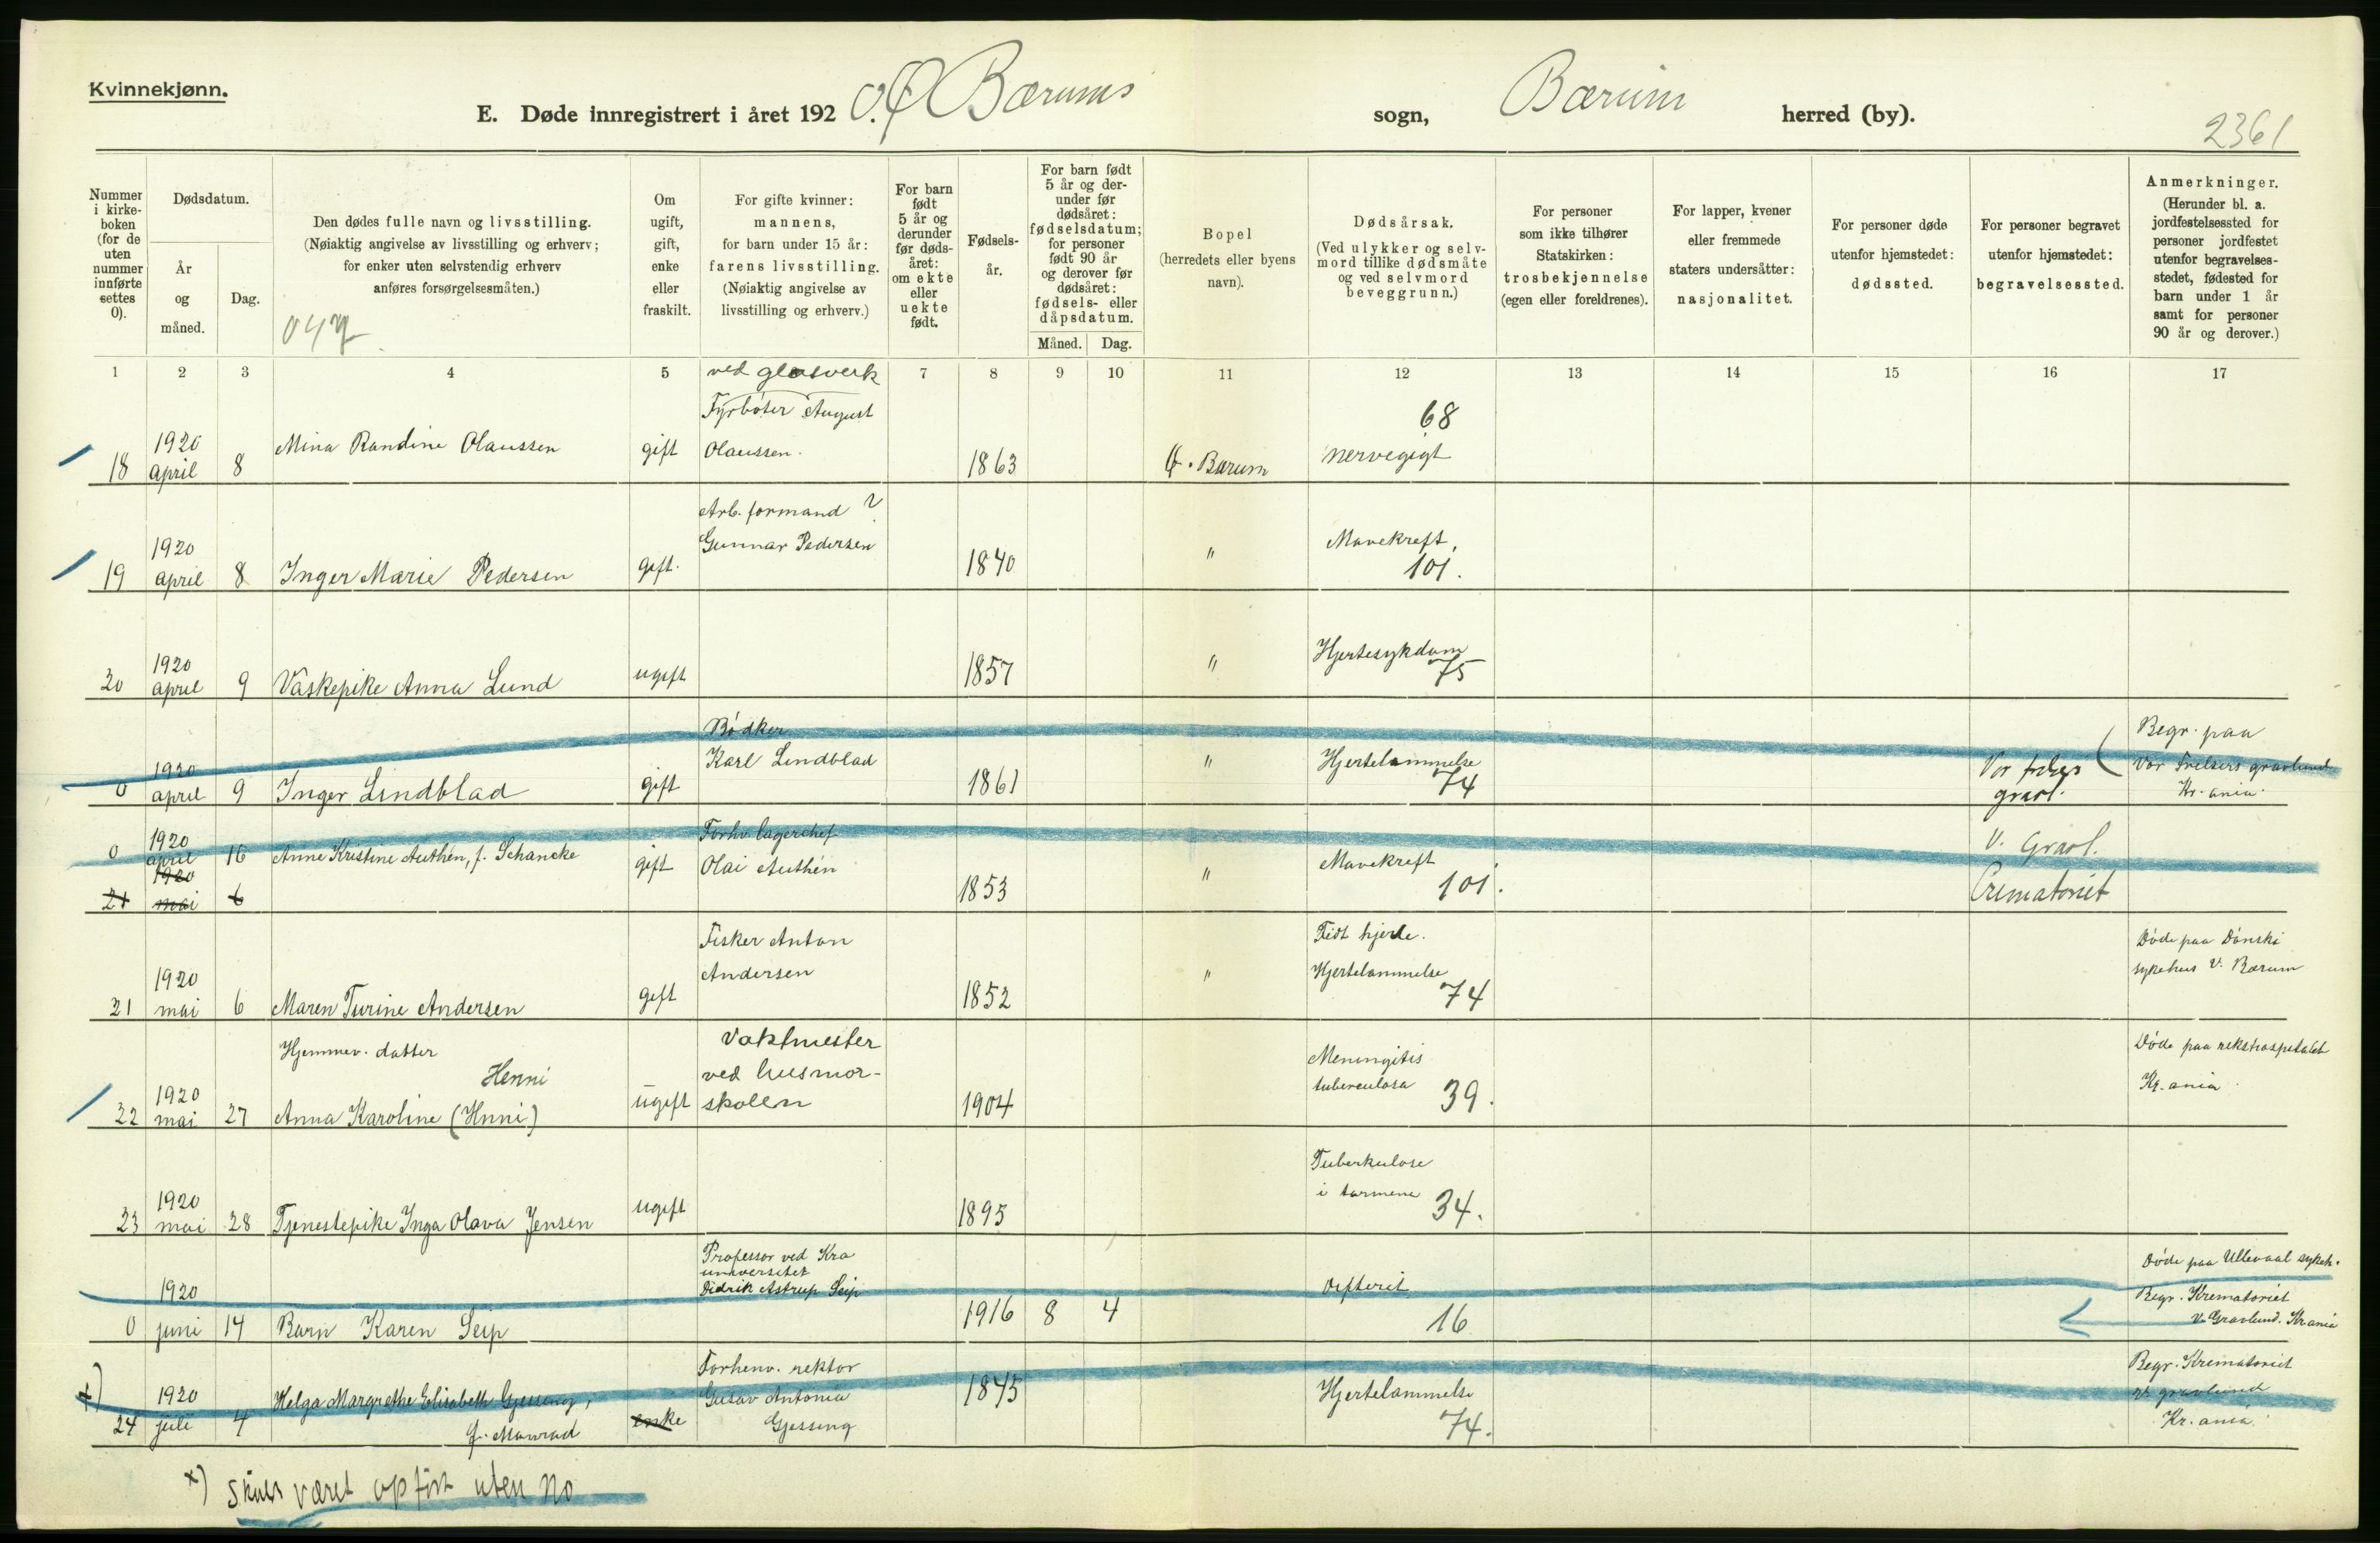 Kvinnekjønn.
E. Døde innregistrert i året 1920. Ø Bærums sogn, Bærum herred (by).
2361
Nummer i kirke-boken (for de uten nummer innførte settes 0).
Dødsdatum.
År og måned.
Dag.
Den dødes fulle navn og livsstilling.
(Nøiaktig angivelse av livsstilling og erhverv;
for enker uten selvstendig erhverv
anføres forsørgelsesmåten.)
Om ugift, gift, enke eller fraskilt.
For gifte kvinner:
mannens,
for barn under 15 år:
farens livsstilling.
(Nøiaktig angivelse av
livsstilling og erhverv.)
For barn født 5 år og derunder før døds-året: om ekte eller uekte født.
Fødsels-år.
For barn født 5 år og der-under før dødsåret: fødselsdatum; for personer født 90 år og derover før dødsåret: fødsels- eller dåpsdatum.
Måned. Dag.
Bopel
(herredets eller byens
navn).
Dødsårsak.
(Ved ulykker og selv-
mord tillike dødsmåte
og ved selvmord
beveggrunn.)
For personer
som ikke tilhører
Statskirken:
trosbekjennelse
(egen eller foreldrenes).
For lapper, kvener
eller fremmede
staters undersåtter:
nasjonalitet.
For personer døde
utenfor hjemstedet:
dødssted.
For personer begravet
utenfor hjemstedet:
begravelsessted.
Anmerkninger.
(Herunder bl. a.
jordfestelsessted for
personer jordfestet
utenfor begravelses-
stedet, fødested for
barn under 1 år
samt for personer
90 år og derover.)
1 2 3 4 5 6 7 8 9 10 11 12 13 14 15 16 17
ved glasverk
Fyrbøter August
68
18 1920 april 8 Mina Randine Olaussen gift Olaussen. 1863 Ø. Bærum nervegigt
Arb. formand ?
19 1920 april 8 Inger Marie Pedersen gift. Gunnar Pedersen 1840 " Mavekreft, 101.
20 1920 april 9 Vaskepike Anna Lund ugift 1857 " Hjertesykdom 75
Bødker
0 1920 april 9 Inger Lindblad gift Karl Lindblad 1861 " Hjertelammelse 74 Vor frelsers gravl. Begr. paa Vor Frelsers gravlund Kr.ania.
Forhv. lagerchef
0 1920 april 16 Anne Kristine Authén, f. Schancke gift Olai Authén 1853 " Mavekreft 101. V. Gravl. Crematoriet
21 1920 mai 6
Fisker Anton
21 1920 mai 6 Maren Turine Andersen gift Andersen 1852 " Fedt hjerte. Hjertelammelse 74 Døde paa Dønski sykehus V. Bærum
Hjemmev. datter
Henni
22 1920 mai 27 Anna Karoline (Hnni) ugift Vaktmester ved husmor-skolen 1904 Meningitis tuberculosa 39. Døde paa rikshospitalet Kr.ania
23 1920 mai 28 Tjenestepike Inga Olava Jensen ugift 1895 Tuberkulose i tarmene 34.
Professor ved Kra universitet
0 1920 juni 14 Barn Karen Seip Didrik Astrup Seip 1916 8 4 Difterit 16 Døde paa Ullevaal sykeh. Begr. Krematoriet V. Gravlund. Kr ania
Forhenv. rektor
x) 24 1920 juli 4 Helga Margrethe Elisabeth Gjessing, enke Gusav Antonia Gjessing 1845 Hjertelammelse 74. Begr. Krematoriet gravlund Kr. ania.
x) været opført uten No